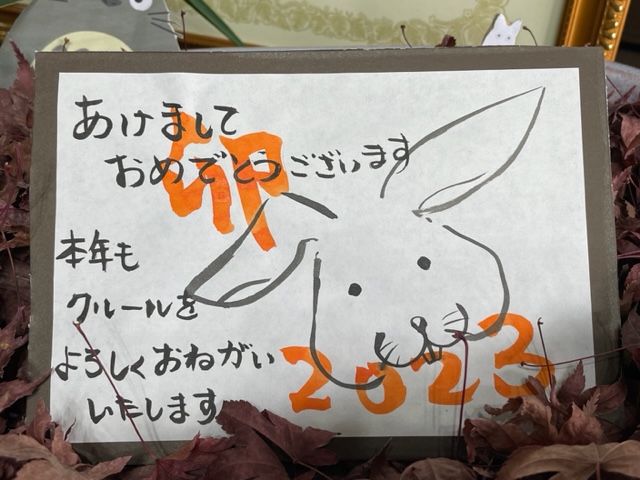 あけまして
おめでとうございます
卯
本年も
クルールを
よろしくおねがい
いたします
2023